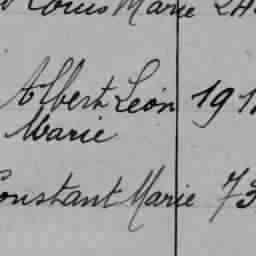 Louis Marie
Albert Léon 191
Marie
Constant Marie 73